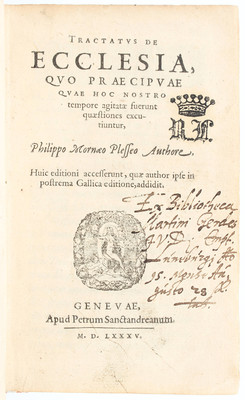 TRACTATVS DE
ECCLESIA,
QVO PRAECIPVAE
QVAE HOC NOSTRO
tempore agitatæ fuerunt
quæstiones excu-
tiuntur,
Philippo Mornæo Plesseo Authore.
Huic editioni accesserunt, quæ author ipse in
postrema Gallica editione, addidit.
Ex Bibliotheca
Martini
GENEVAE,
Apud Petrum Sanctandreanum.
M. D. LXXXV.